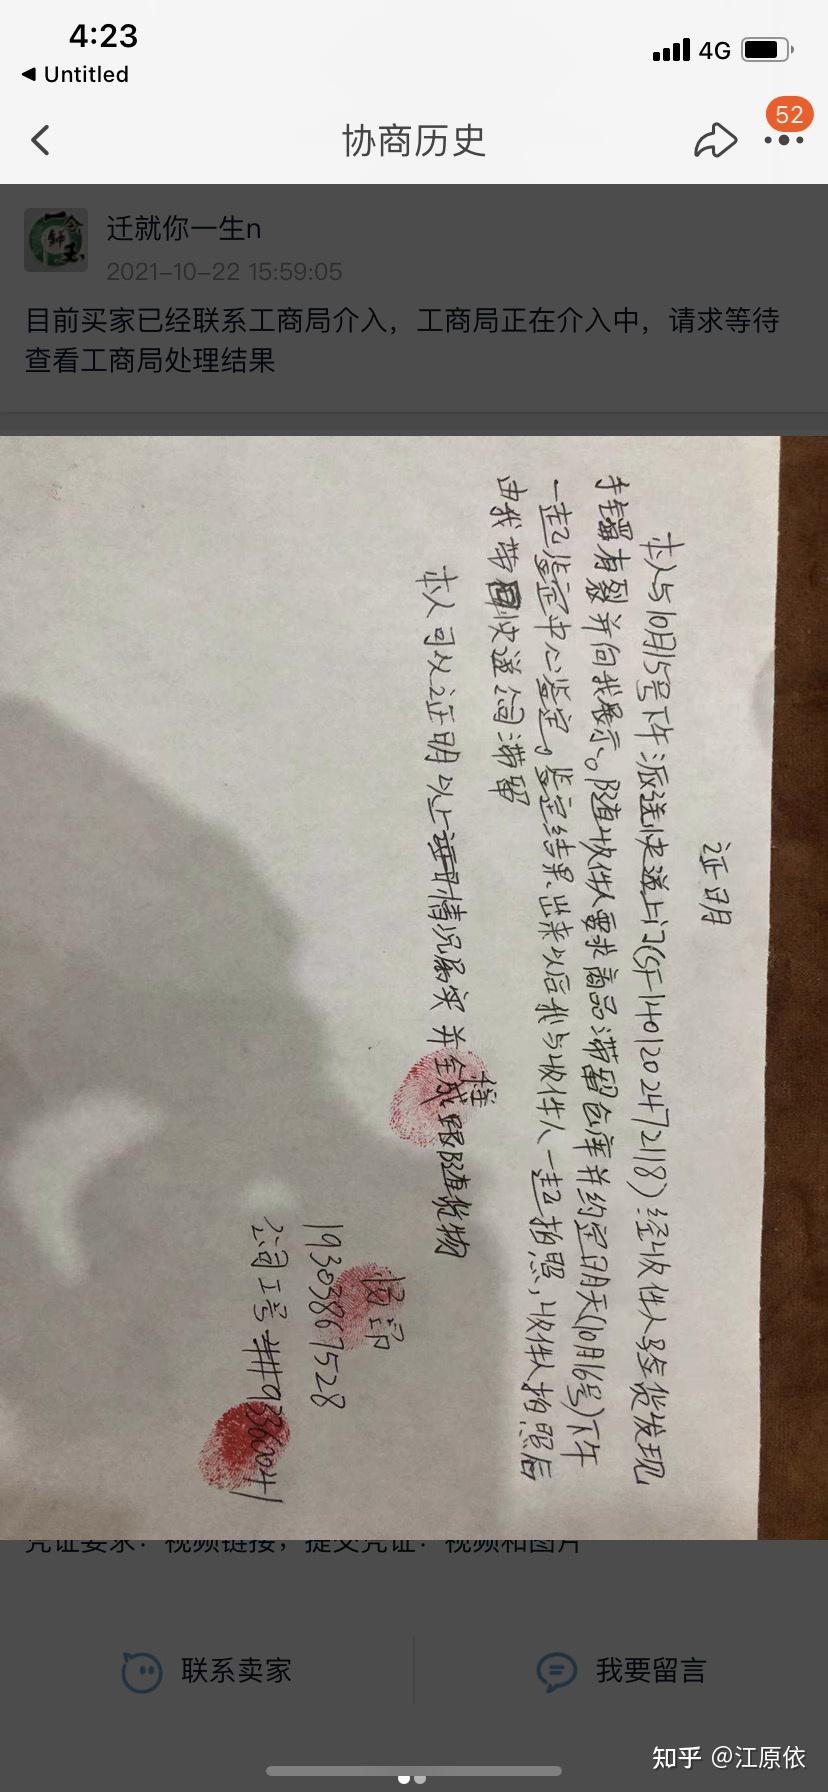 4:23
4G
Untitled
协商历史
52
迁就你一生n
2021-10-22 15:59:05
目前买家已经联系工商局介入，工商局正在介入中，请求等待
查看工商局处理结果
证明
本人与10月15号下午派送快递上门(SF1401202472118)经收件人验货发现
手镯有裂并向我展示。随收件人要求商品滞留仓库并约定明天(10月16号)下午
一起鉴定中心鉴定。鉴定结果出来以后我与收件人一起拍照，收件人拍照后
由我带回快递公司滞留
本人可以证明以上情况属实并全程跟随货物
19303867528
公司工号
凭证要求：视频链接，提交凭证：视频和图片
联系卖家
我要留言
知乎 @江原依